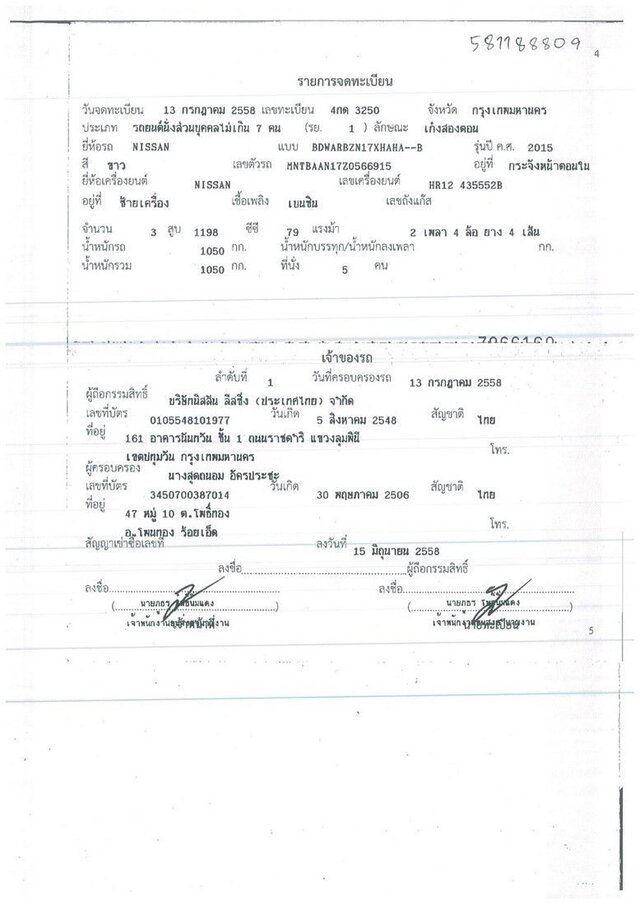 581188809
4
รายการจดทะเบียน
วันจดทะเบียน 13 กรกฎาคม 2558 เลขทะเบียน 4กด 3250 จังหวัด กรุงเทพมหานคร
ประเภท รถยนต์นั่งส่วนบุคคลไม่เกิน 7 คน (รย. 1 ) ลักษณะ เก๋งสองตอน
ยี่ห้อรถ NISSAN แบบ BDWARBZN17XHAHA--B รุ่นปี ค.ศ. 2015
สี ขาว เลขตัวรถ MNTBAAN17Z0566915 อยู่ที่ กระจังหน้าตอนใน
ยี่ห้อเครื่องยนต์ NISSAN เลขเครื่องยนต์ HR12 435552B
อยู่ที่ ซ้ายเครื่อง เชื้อเพลิง เบนซิน เลขถังแก๊ส
จำนวน 3 สูบ 1198 ซีซี 79 แรงม้า 2 เพลา 4 ล้อ ยาง 4 เส้น
น้ำหนักรถ 1050 กก. น้ำหนักบรรทุก/น้ำหนักลงเพลา กก.
น้ำหนักรวม 1050 กก. ที่นั่ง 5 คน
เจ้าของรถ
ลำดับที่ 1 วันที่ครอบครองรถ 13 กรกฎาคม 2558
ผู้ถือกรรมสิทธิ์ บริษัทนิสสัน ลีสซิ่ง (ประเทศไทย) จำกัด
เลขที่บัตร 0105548101977 วันเกิด 5 สิงหาคม 2548 สัญชาติ ไทย
ที่อยู่ 161 อาคารนันทวัน ชั้น 1 ถนนราชดำริ แขวงลุมพินี
เขตปทุมวัน กรุงเทพมหานคร โทร.
ผู้ครอบครอง นางสุดถนอม อัครประชะ
เลขที่บัตร 3450700387014 วันเกิด 30 พฤษภาคม 2506 สัญชาติ ไทย
ที่อยู่ 47 หมู่ 10 ต.โพธิ์ทอง
อ.โพนทอง ร้อยเอ็ด โทร.
สัญญาเช่าซื้อเลขที่ ลงวันที่ 15 มิถุนายน 2558
ลงชื่อ ผู้ถือกรรมสิทธิ์
ลงชื่อ ลงชื่อ
นายภูธร นายภูธร
นายทะเบียน
5